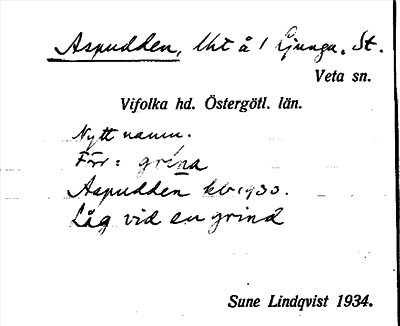 Aspudden, lht å 1 Ljunga, St.
Veta sn.
Vifolka hd. Östergötl. län.
Nytt namn.
Förr: grina
Aspudden kb 1933.
Låg vid en grind
Sune Lindqvist 1934.